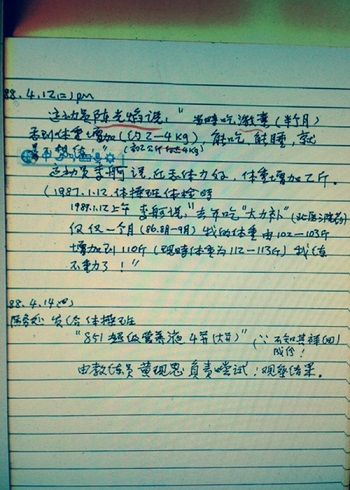 88.4.12(二) pm
运动员陈光焰说，"当时吃激素（半月）
感到体重增加（约2—4kg）能吃，能睡，就
是不想练！"
运动员李舸说 反正体力好，体重增加了斤。
（1987.1.12 体操班体检时
1987.1.12上午 李舸说，"去年吃"大力补"
仅仅一个月（86.8月-9月）我的体重由102—103斤
增加到110斤（现时体重为112—113斤）我
不动了！"
88.4.14(四)
发给体操班
"851超级营养液 4"（∵不知其
成份！
由教练员黄 负责尝试！观察结果。